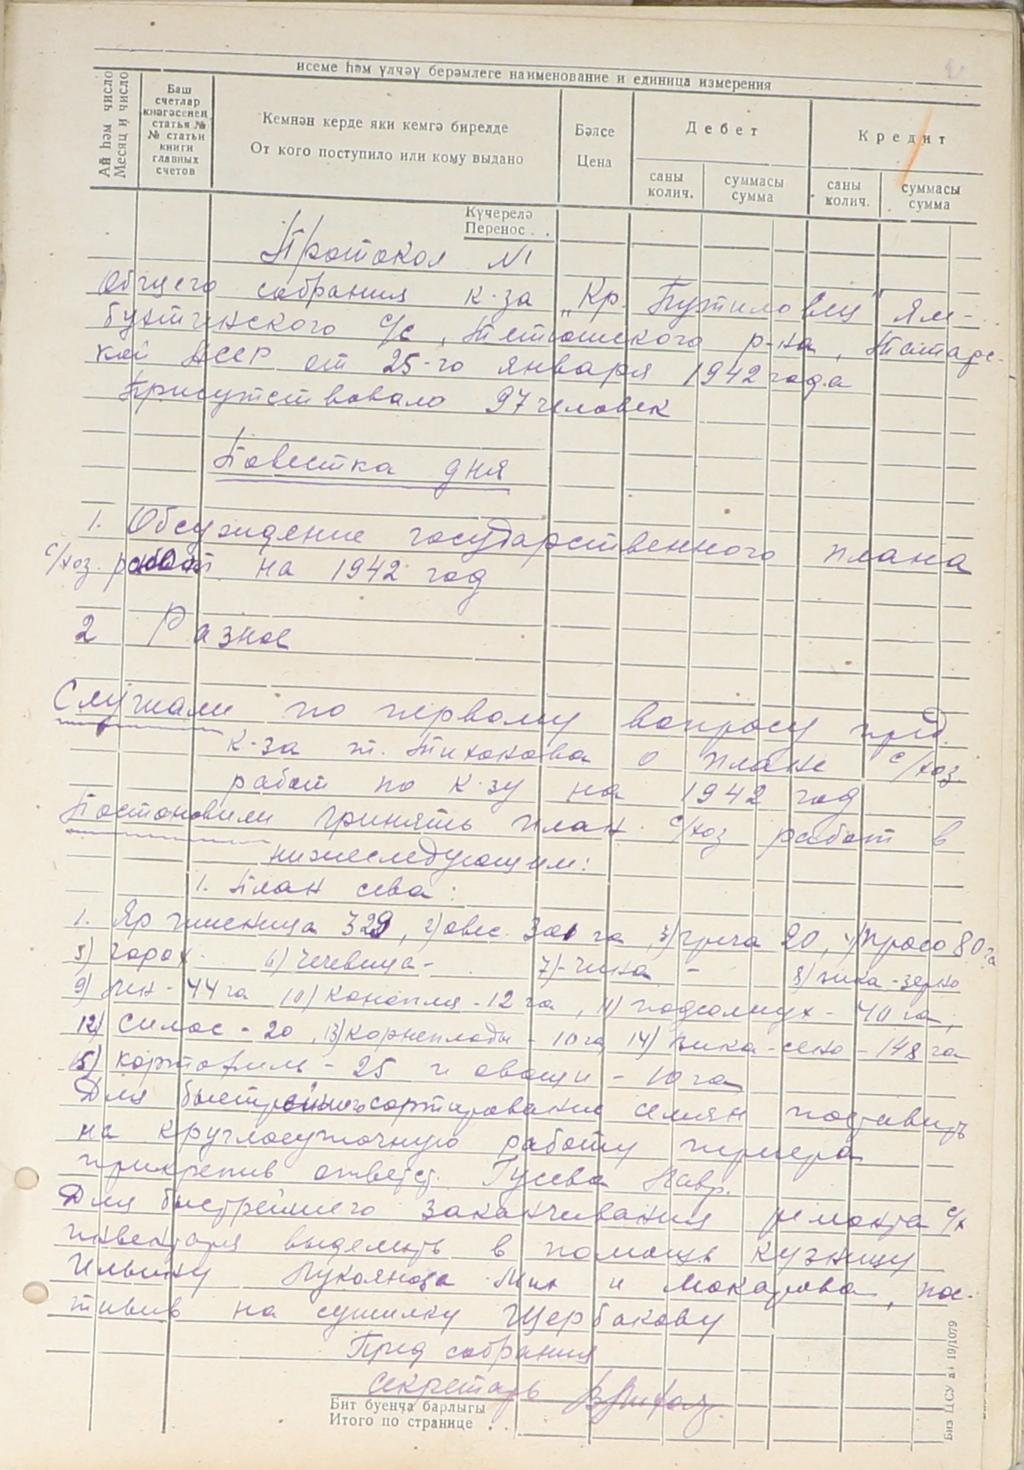 исеме һәм үлчәү берәмлеге наименование и единица измерения
Ай һәм число
Месяц и число
Баш
счетлар
кнәгәсенең
статья №
№ статьи
книги
главных
счетов
Кемнән керде яки кемгә бирелде
От кого поступило или кому выдано
Бәясе
Цена
Дебет
Кредит
саны
колич.
суммасы
сумма
саны
колич.
суммасы
сумма
Күчерелә
Перенос . .
Протокол №1
Общего собрания к-за "Кр. Путиловец" Ям-
бухтинского с/с, Тетюшского р-на, Татарс-
кой АССР от 25-го января 1942 года
Присутствовало 97 человек
Повестка дня
1. Обсуждение государственного плана
с/хоз. работ на 1942 год
2 Разное
Слушали по первому вопросу пред.
к-за т. Тихонова о плане с/хоз
работ по к-зу на 1942 год
Постановили принять план с/хоз работ в
нижеследующем:
1. План сева:
1. Яр пшеница 329, 2) овес 301 га, 3) греча 20, 4) просо 80 га
5) горох - 6) чечевица - 7) - чина - 8) вика-зерно
9) лен - 44 га 10) конопля - 12 га, 11) подсолнух - 40 га,
12) силос - 20, 13) корнеплоды - 10 га 14) вика-сено - 148 га
15) картофель - 25 и овощи - 10 га
Для быстрейшего сортирование семян поставить
на круглосуточную работу триера
прикрепив ответст. Гусева Лавр.
Для быстрейшего заканчивания ремонта с/х
инвентаря выделить в помощь кузнецу
Ильину Лукоянова Мих и Макарова, пос-
тавив на сушилку Щербакову
Пред собрания
секретарь
Бит буенча барлыгы
Итого по странице . . .
Биз ЦСУ 19/1079